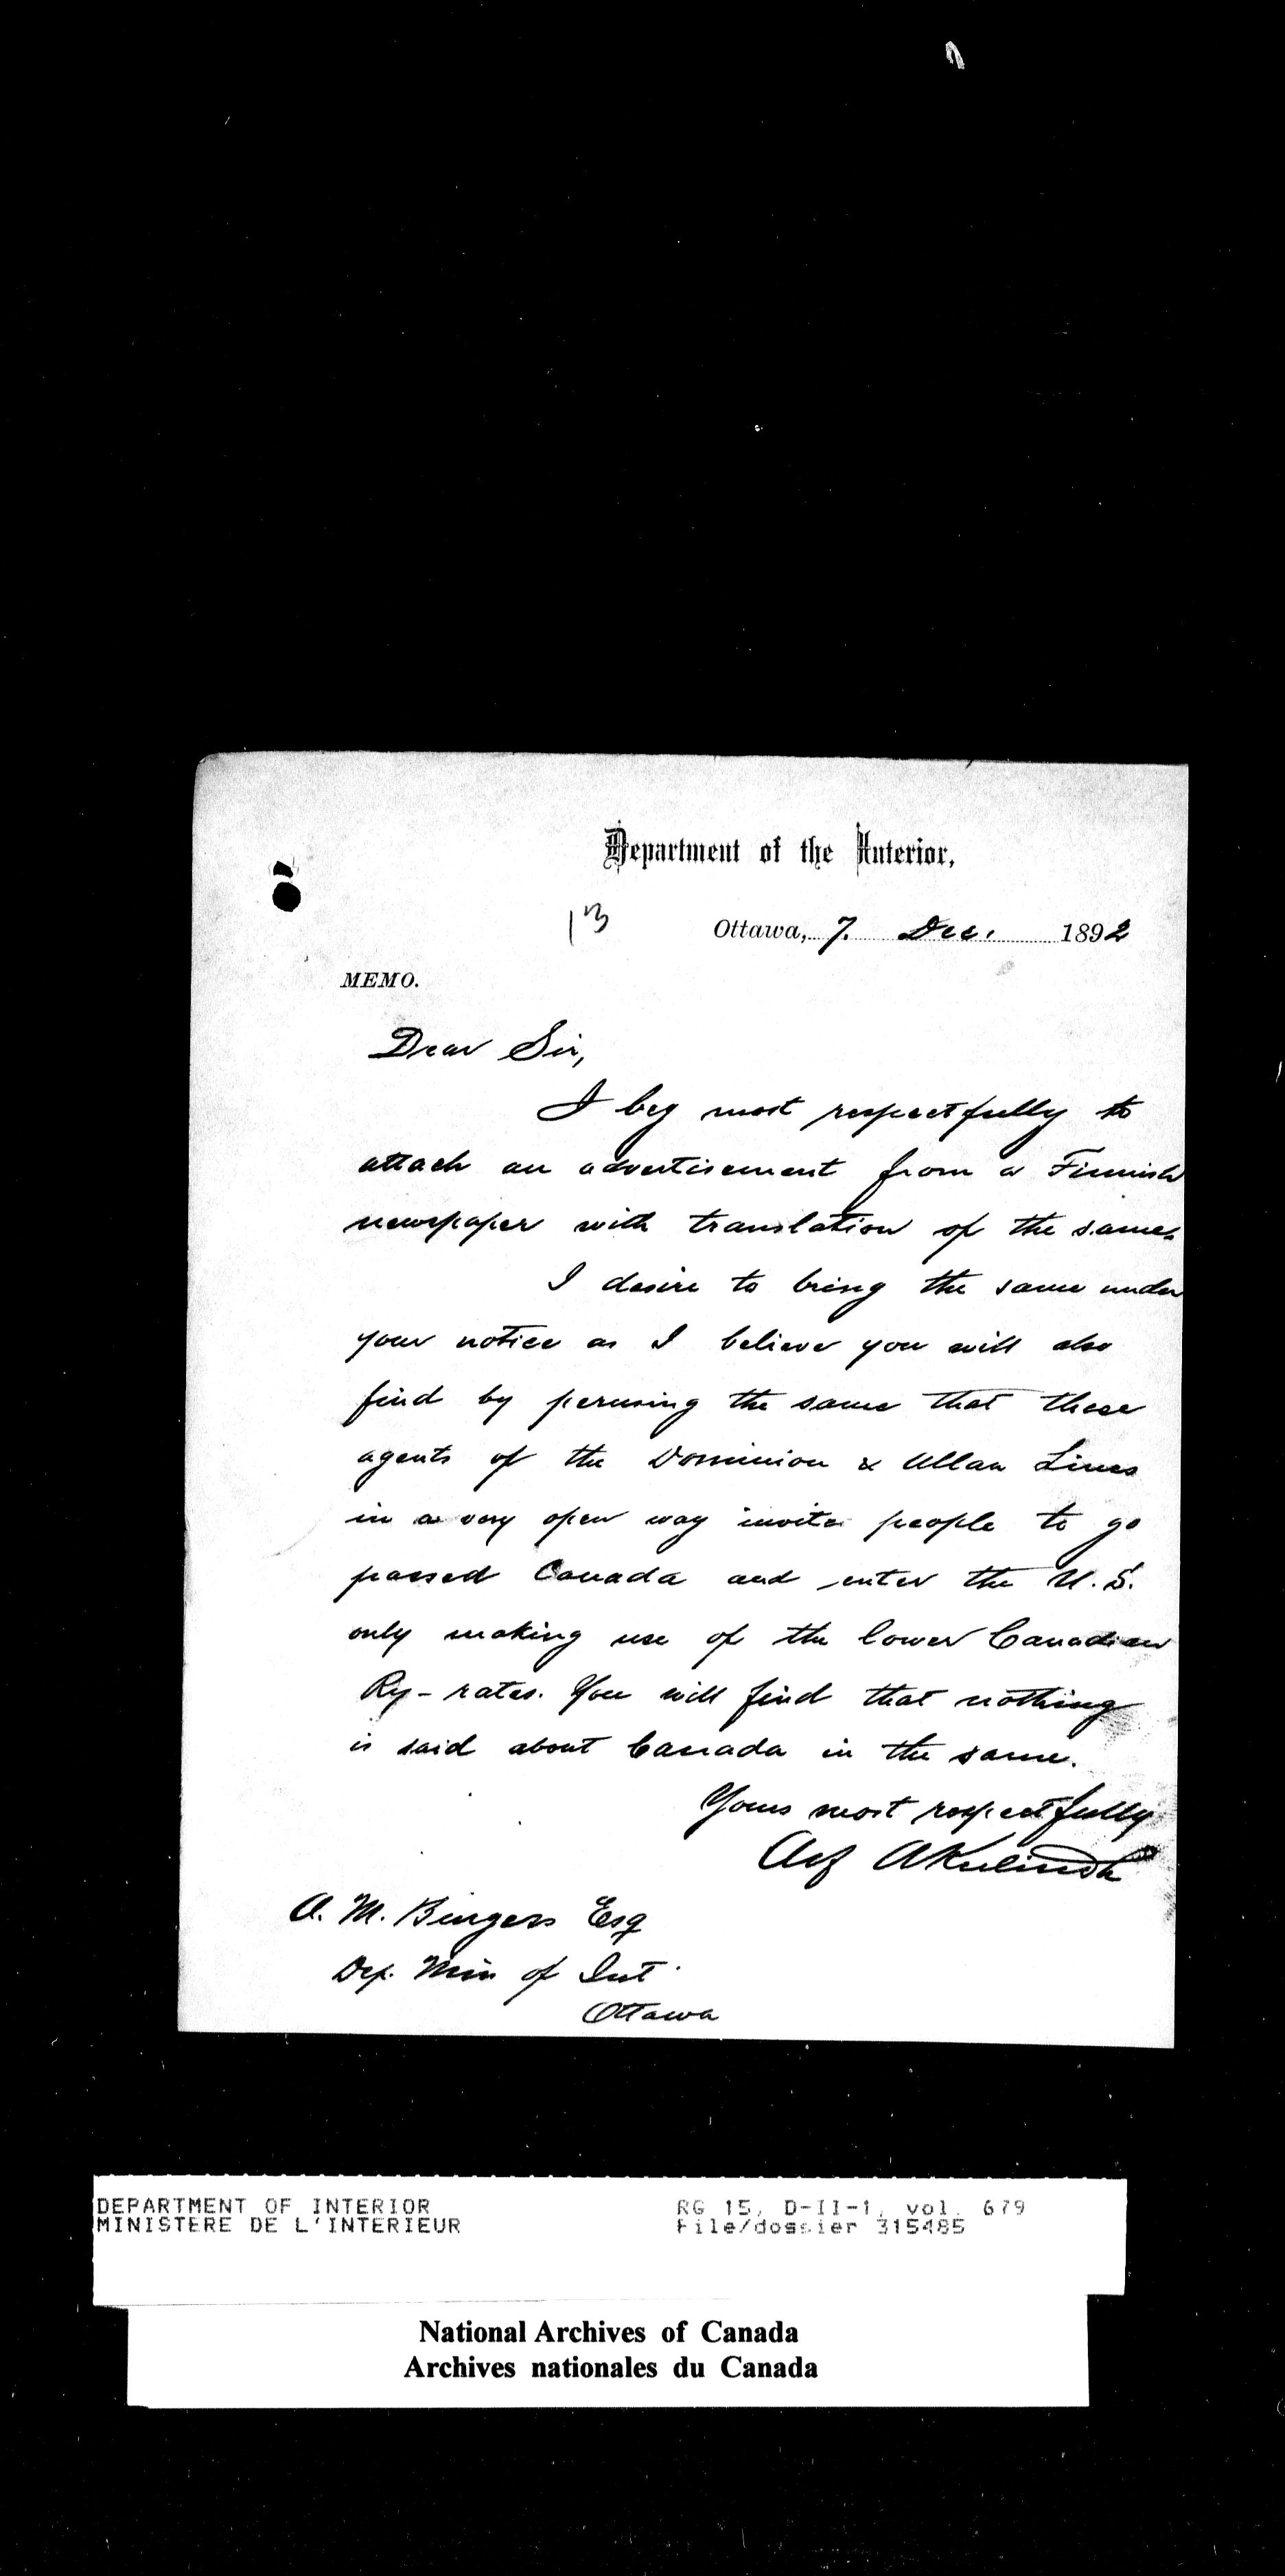 Department of the Interior,
13
Ottawa, 7. Dec. 1892
MEMO.
Dear Sir,
I beg most respectfully to
attach an advertisement from a Finnish
newspaper with translation of the same.
I desire to bring the same under
your notice as I believe you will also
find by perusing the same that these
agents of the Dominion & Allan Lines
in a very open way invite people to go
passed Canada and enter the U.S.
only making use of the lower Canadian
Ry-rates. You will find that nothing
is said about Canada in the same.
Yours most respectfully
A. M. Burgess Esq
Dep. Min of Int.
Ottawa
DEPARTMENT OF INTERIOR
MINISTERE DE L'INTERIEUR
RG 15, D-II-1, vol. 679
File/dossier 315485
National Archives of Canada
Archives nationales du Canada